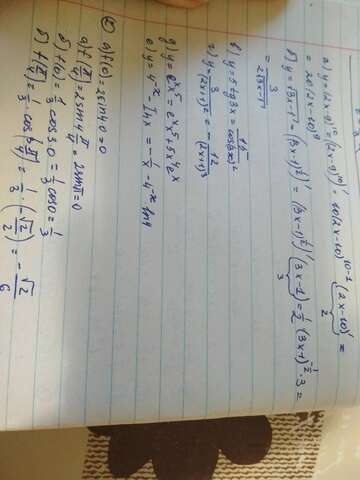 а) y = (2x-9)^10 = ((2x-9)^10)' = 10(2x-10)^10-1 (2x-10)' =
2
= 20(2x-10)^9
б) y = √3x-1' = (3x-1)^½)' = ((3x-1)^½)' (3x-1) = ½ (3x+1)^-½ · 3 =
3
= 3/2√3x-1
в) y = 5 tg 3x = 15/cos(3x)^2
г) y = 3/(2x+1)^2 = - 12/(2x+1)^3
д) y = e^x x^5 = e^x x^5 + 5x^4 e^x
е) y = 4^-x - ln x = - 1/x - 4^-x ln 4
② а) f(0) = 2 sin 4·0 = 0
а) f(π/4) = 2 sin 4 π/4 = 2 sin π = 0
б) f(0) = 1/3 cos 3·0 = 1/3 cos 0 = 1/3
б) f(π/4) = 1/3 · cos(3π/4) = 1/3 · (-√2/2) = - √2/6